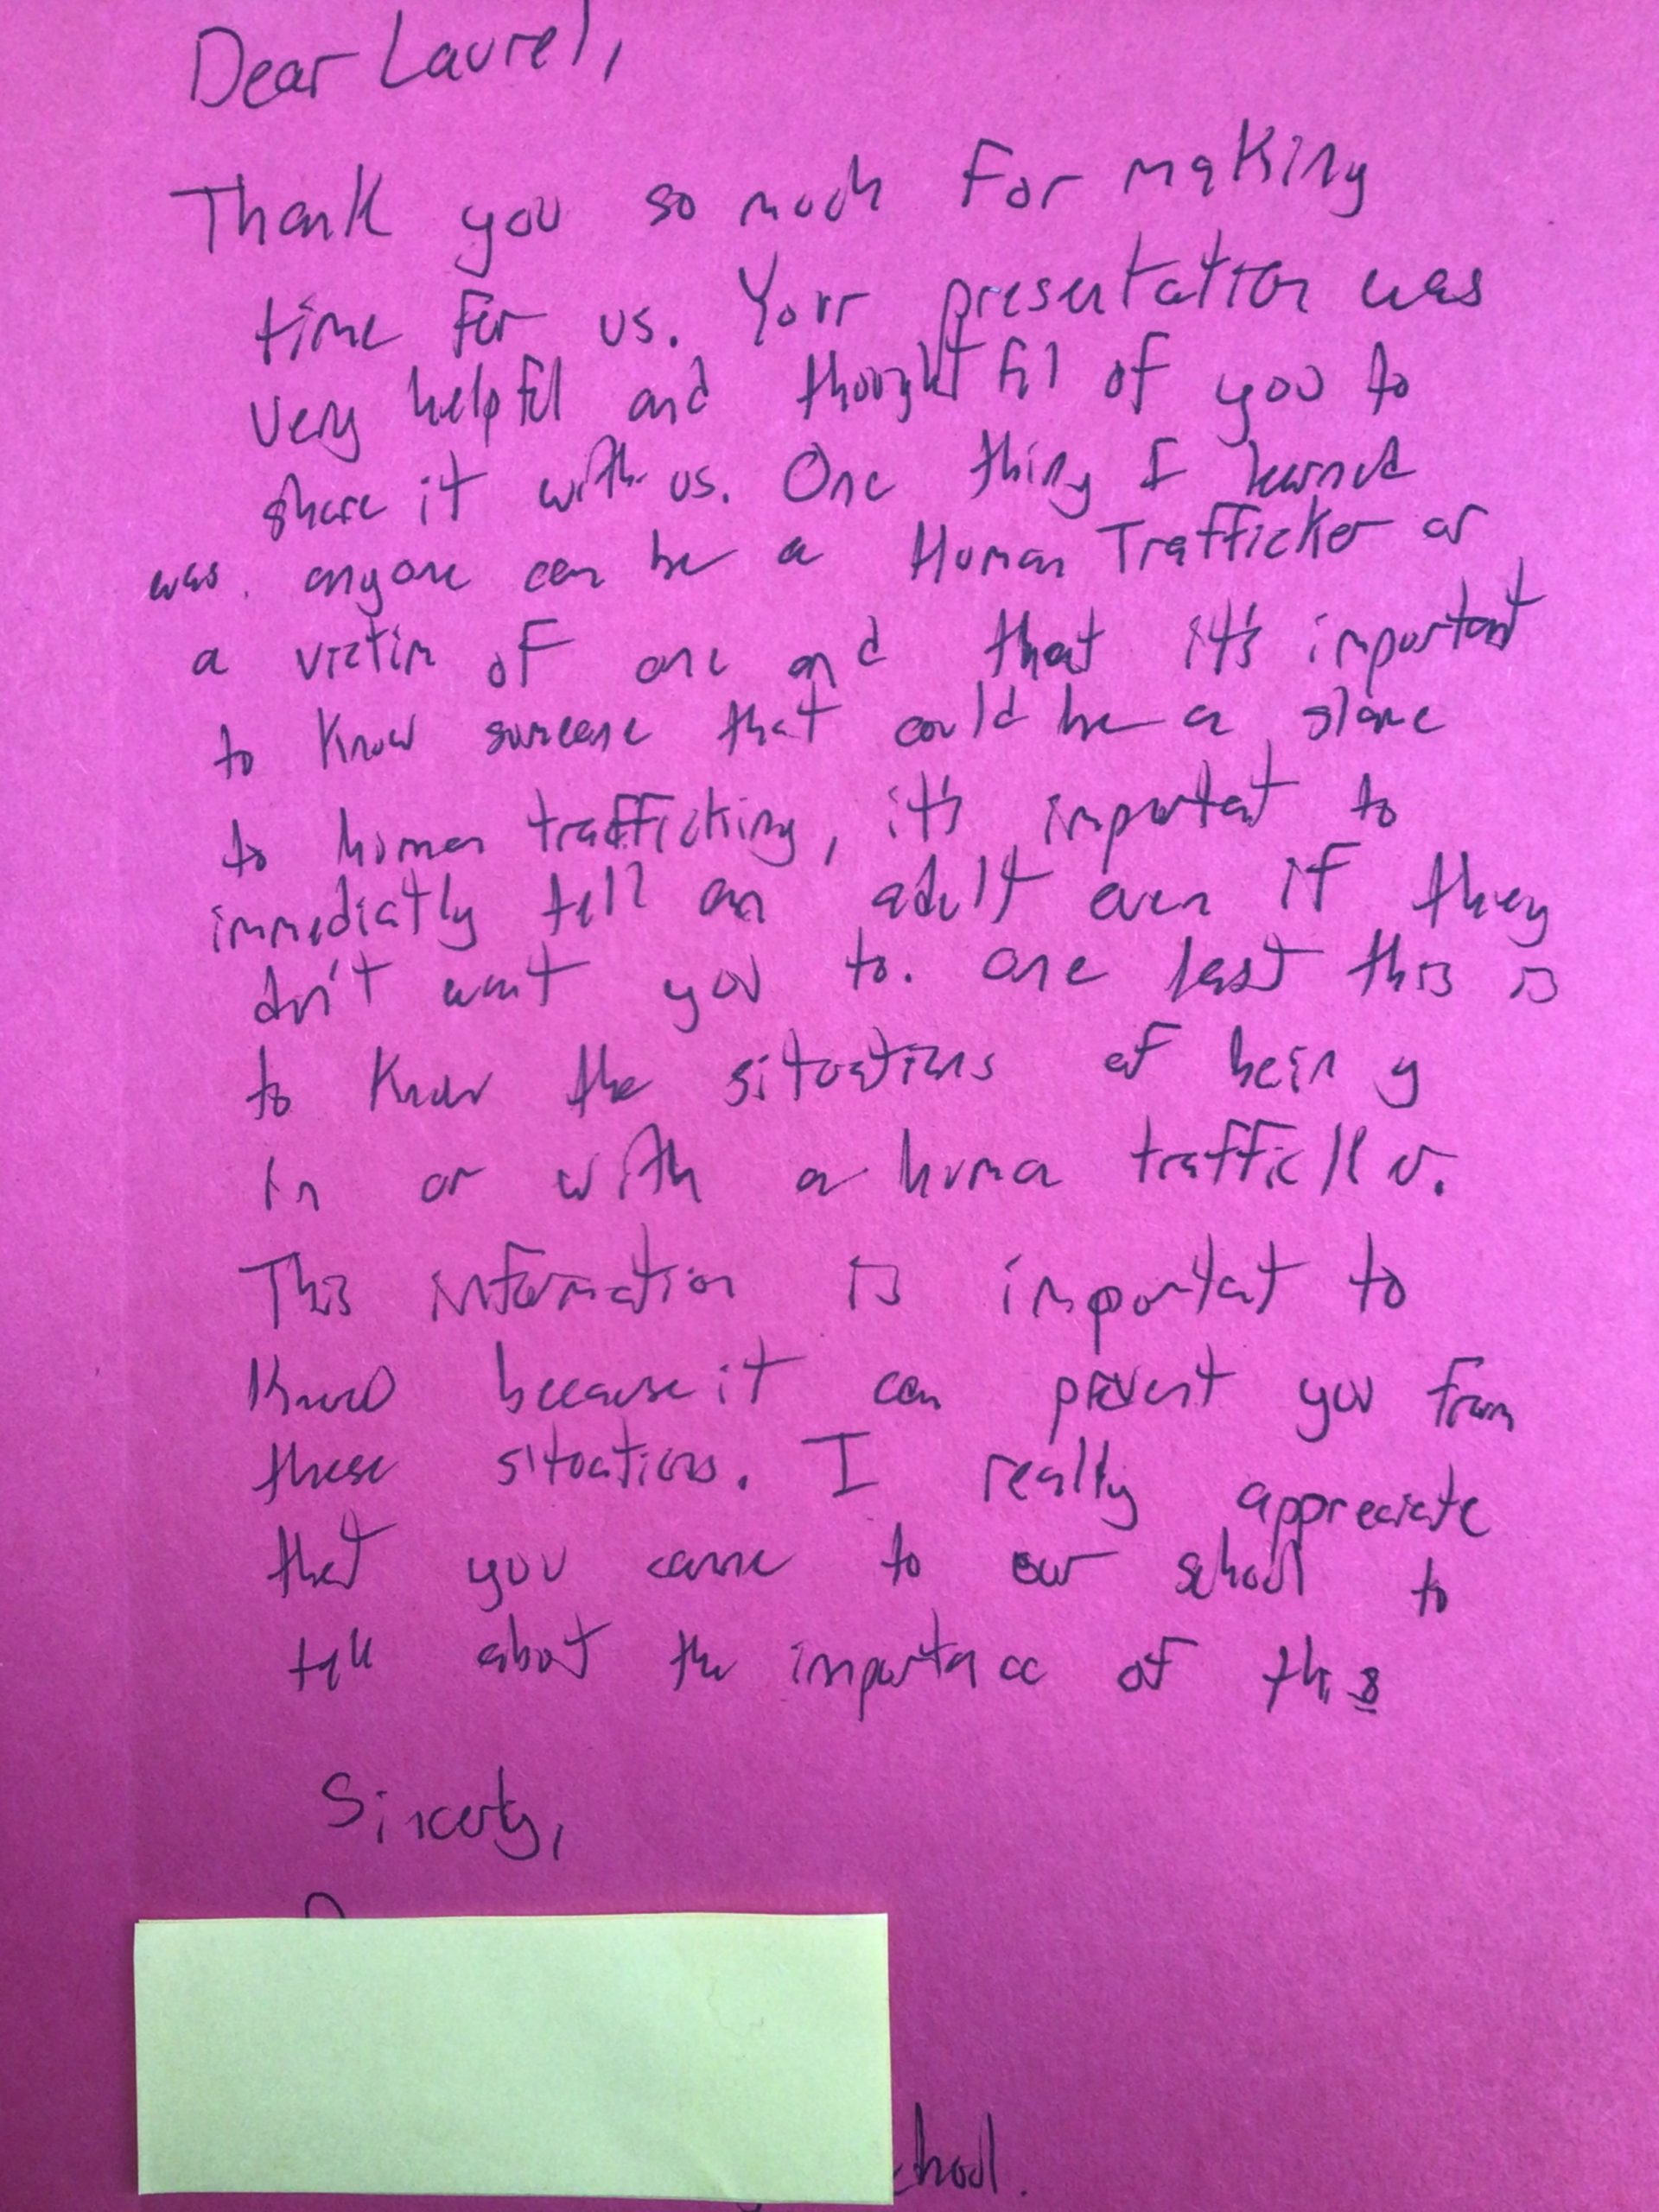 Dear Laurel,
Thank you so much for making
time for us. Your presentation was
very helpful and thoughtful of you to
share it with us. One thing I learned
was anyone can be a Human Trafficker or
a victim of one and that it's important
to know someone that could be a slave
to human trafficking, it's important to
immediatly tell an adult even if they
don't want you to. One last this is
to know the situations of being
in or with a huma trafficker.
This information is important to
know because it can prevent you from
these situations. I really appreciate
that you came to our school to
talk about the importance of this
Sincerly,
chool.